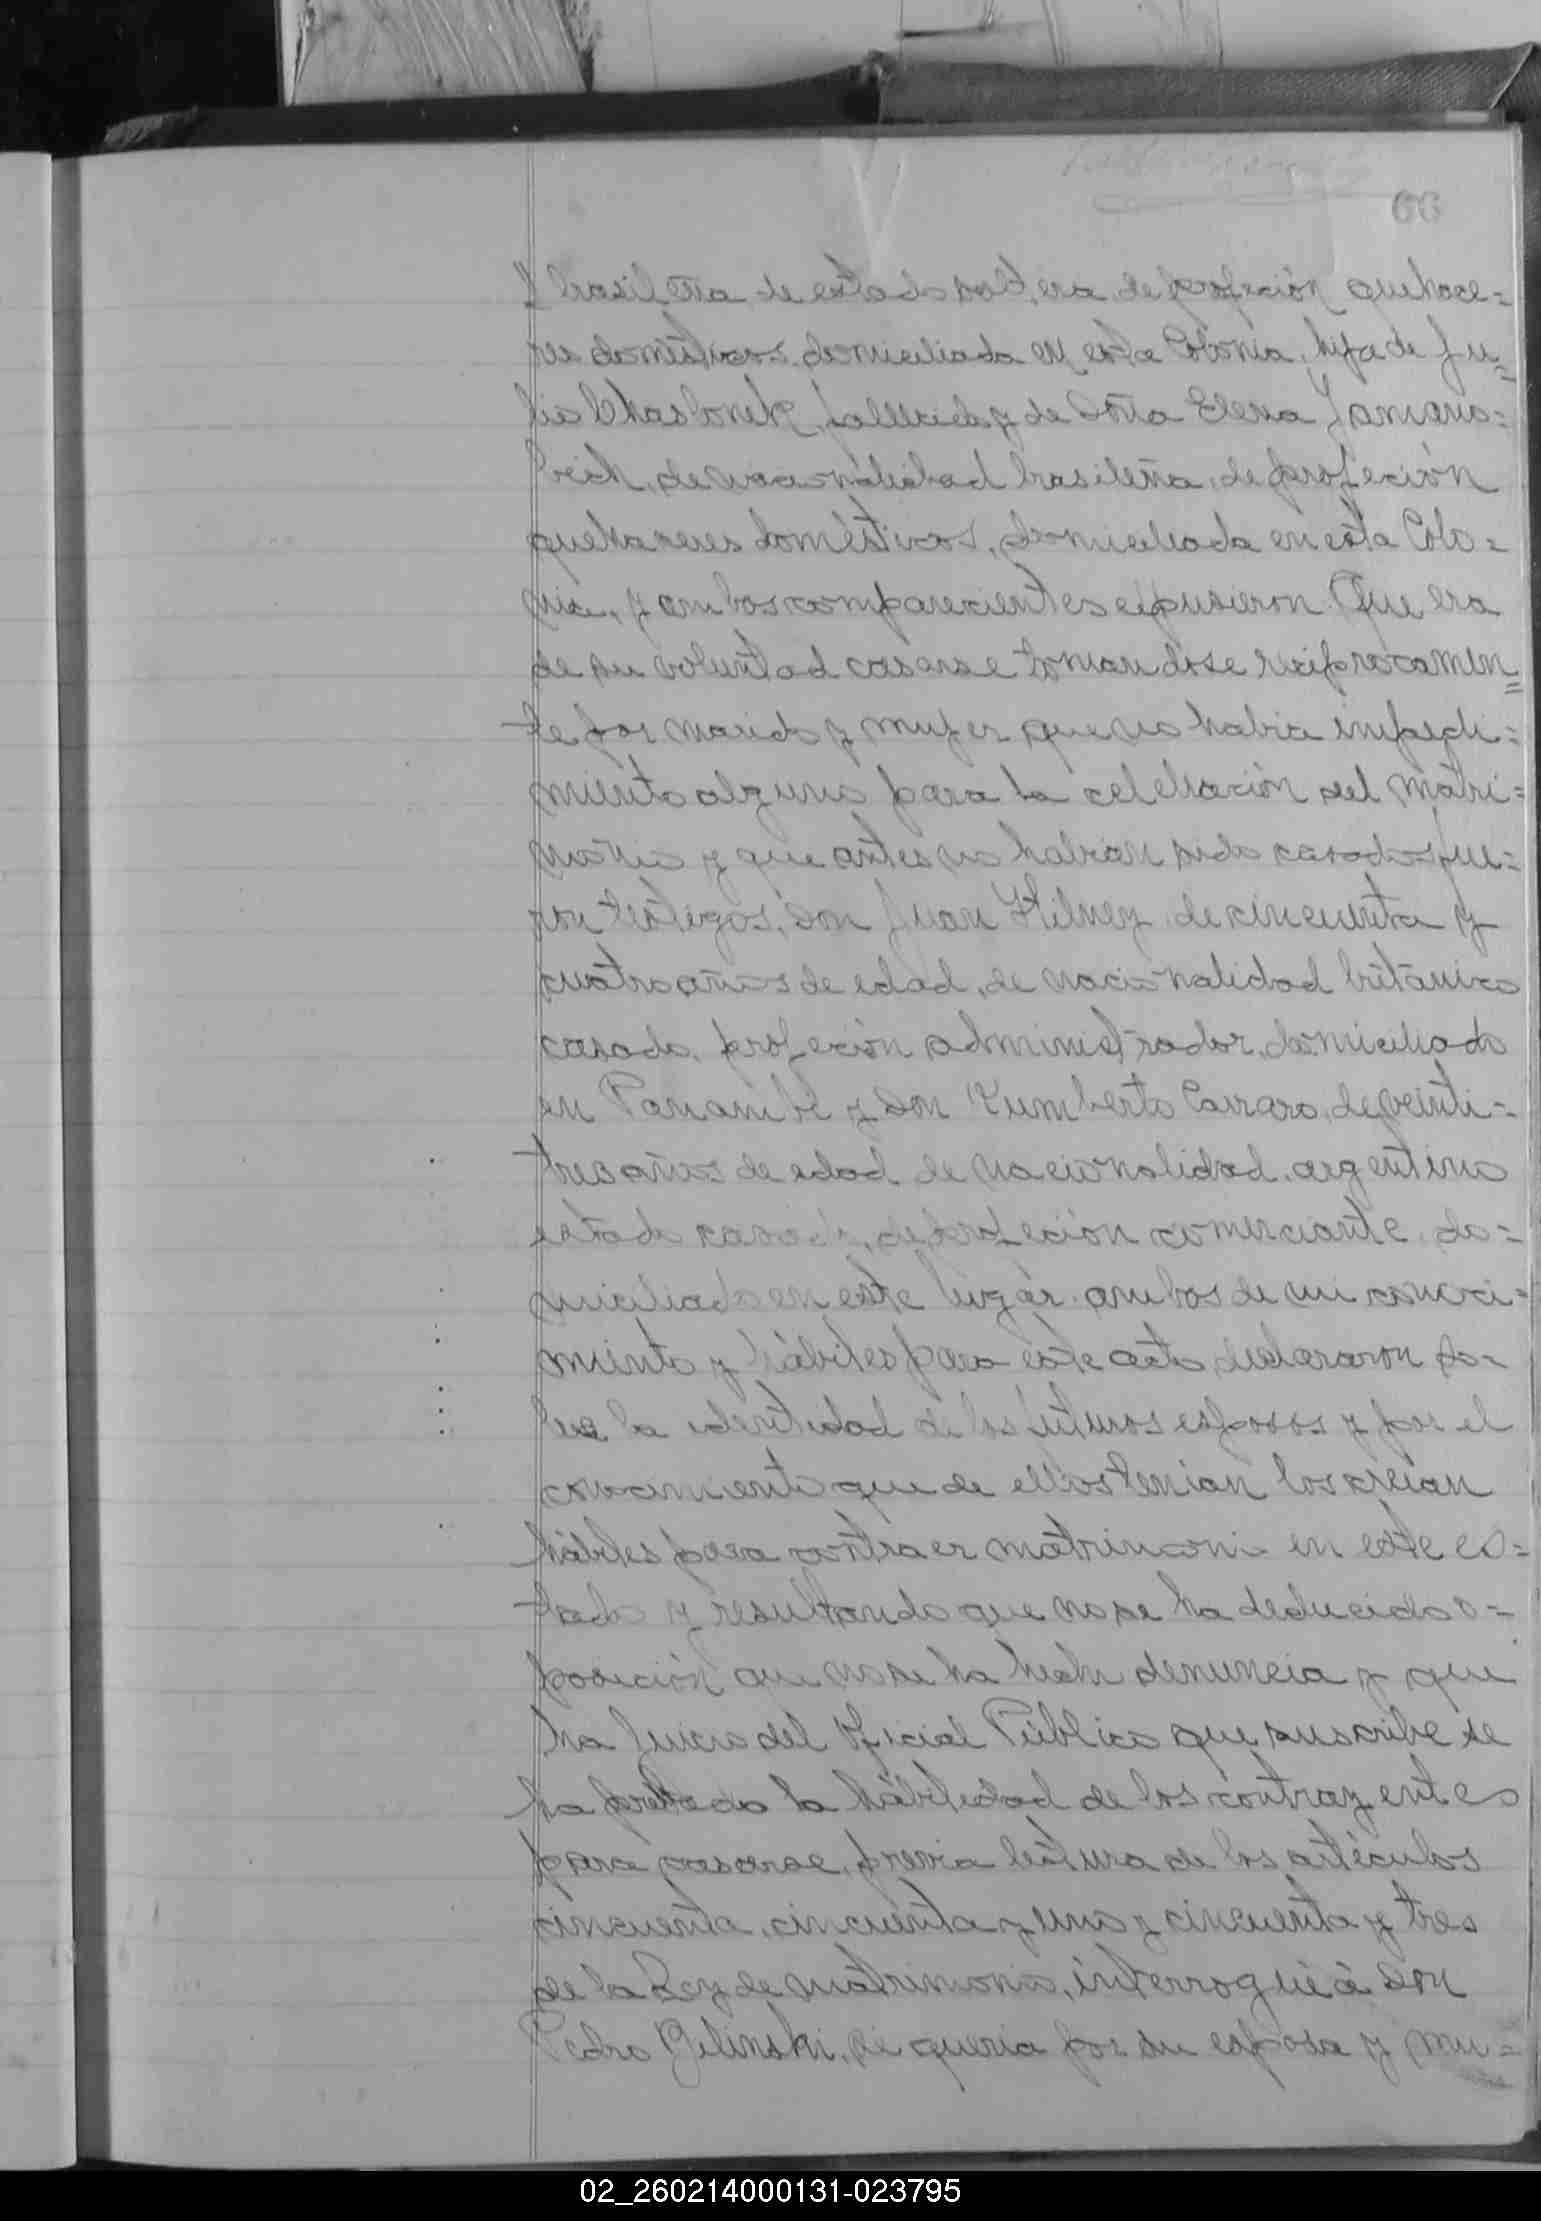 66
brasileña, de estado soltera, de profeción quehace=
res domésticos, domiciliada en esta Colonia, hija de Ju=
lia Chasbonek, fallecida, y de Doña Elena
de nacionalidad brasileña, de profeción
quehaceres domésticos, domiciliada en esta Colo=
nia, y ambos comparecientes expusieron: Que era
de su voluntad casarse tomandose reciprocamen=
te por marido y mujer, que no habia impedi=
miento alguno para la celebración del matri=
monio y que antes no habian sido casados, fue=
ron testigos, Don Juan Hilney, de cincuenta y
cuatro años de edad, de nacionalidad británico
casado, profeción administrador, domiciliado
en Panambí, y Don Carraro, de veinti=
tres años de edad, de nacionalidad, argentino
estado casado, de profeción comerciante, do=
miciliado en este lugár, ambos de mi conoci=
miento y hábiles para este acto, declararon so=
bre la identidad de los futuros esposos y por el
conocimiento que de ellos tenian los creian
hábiles para contraer matrimonio en este es=
tado y resultando que no se ha deducido o=
posición que no se ha hecho denuncia y que
ha Juicio del Oficial Público que suscribe se
ha probado la hábilidad de los contrayentes
para casarse, previa lectura de los artículos
cincuenta, cincuenta y uno y cincuenta y tres
de la Ley de matrimonio, interrogué á Don
Pedro Gelinski, si queria por su esposa y mu=
02_260214000131-023795